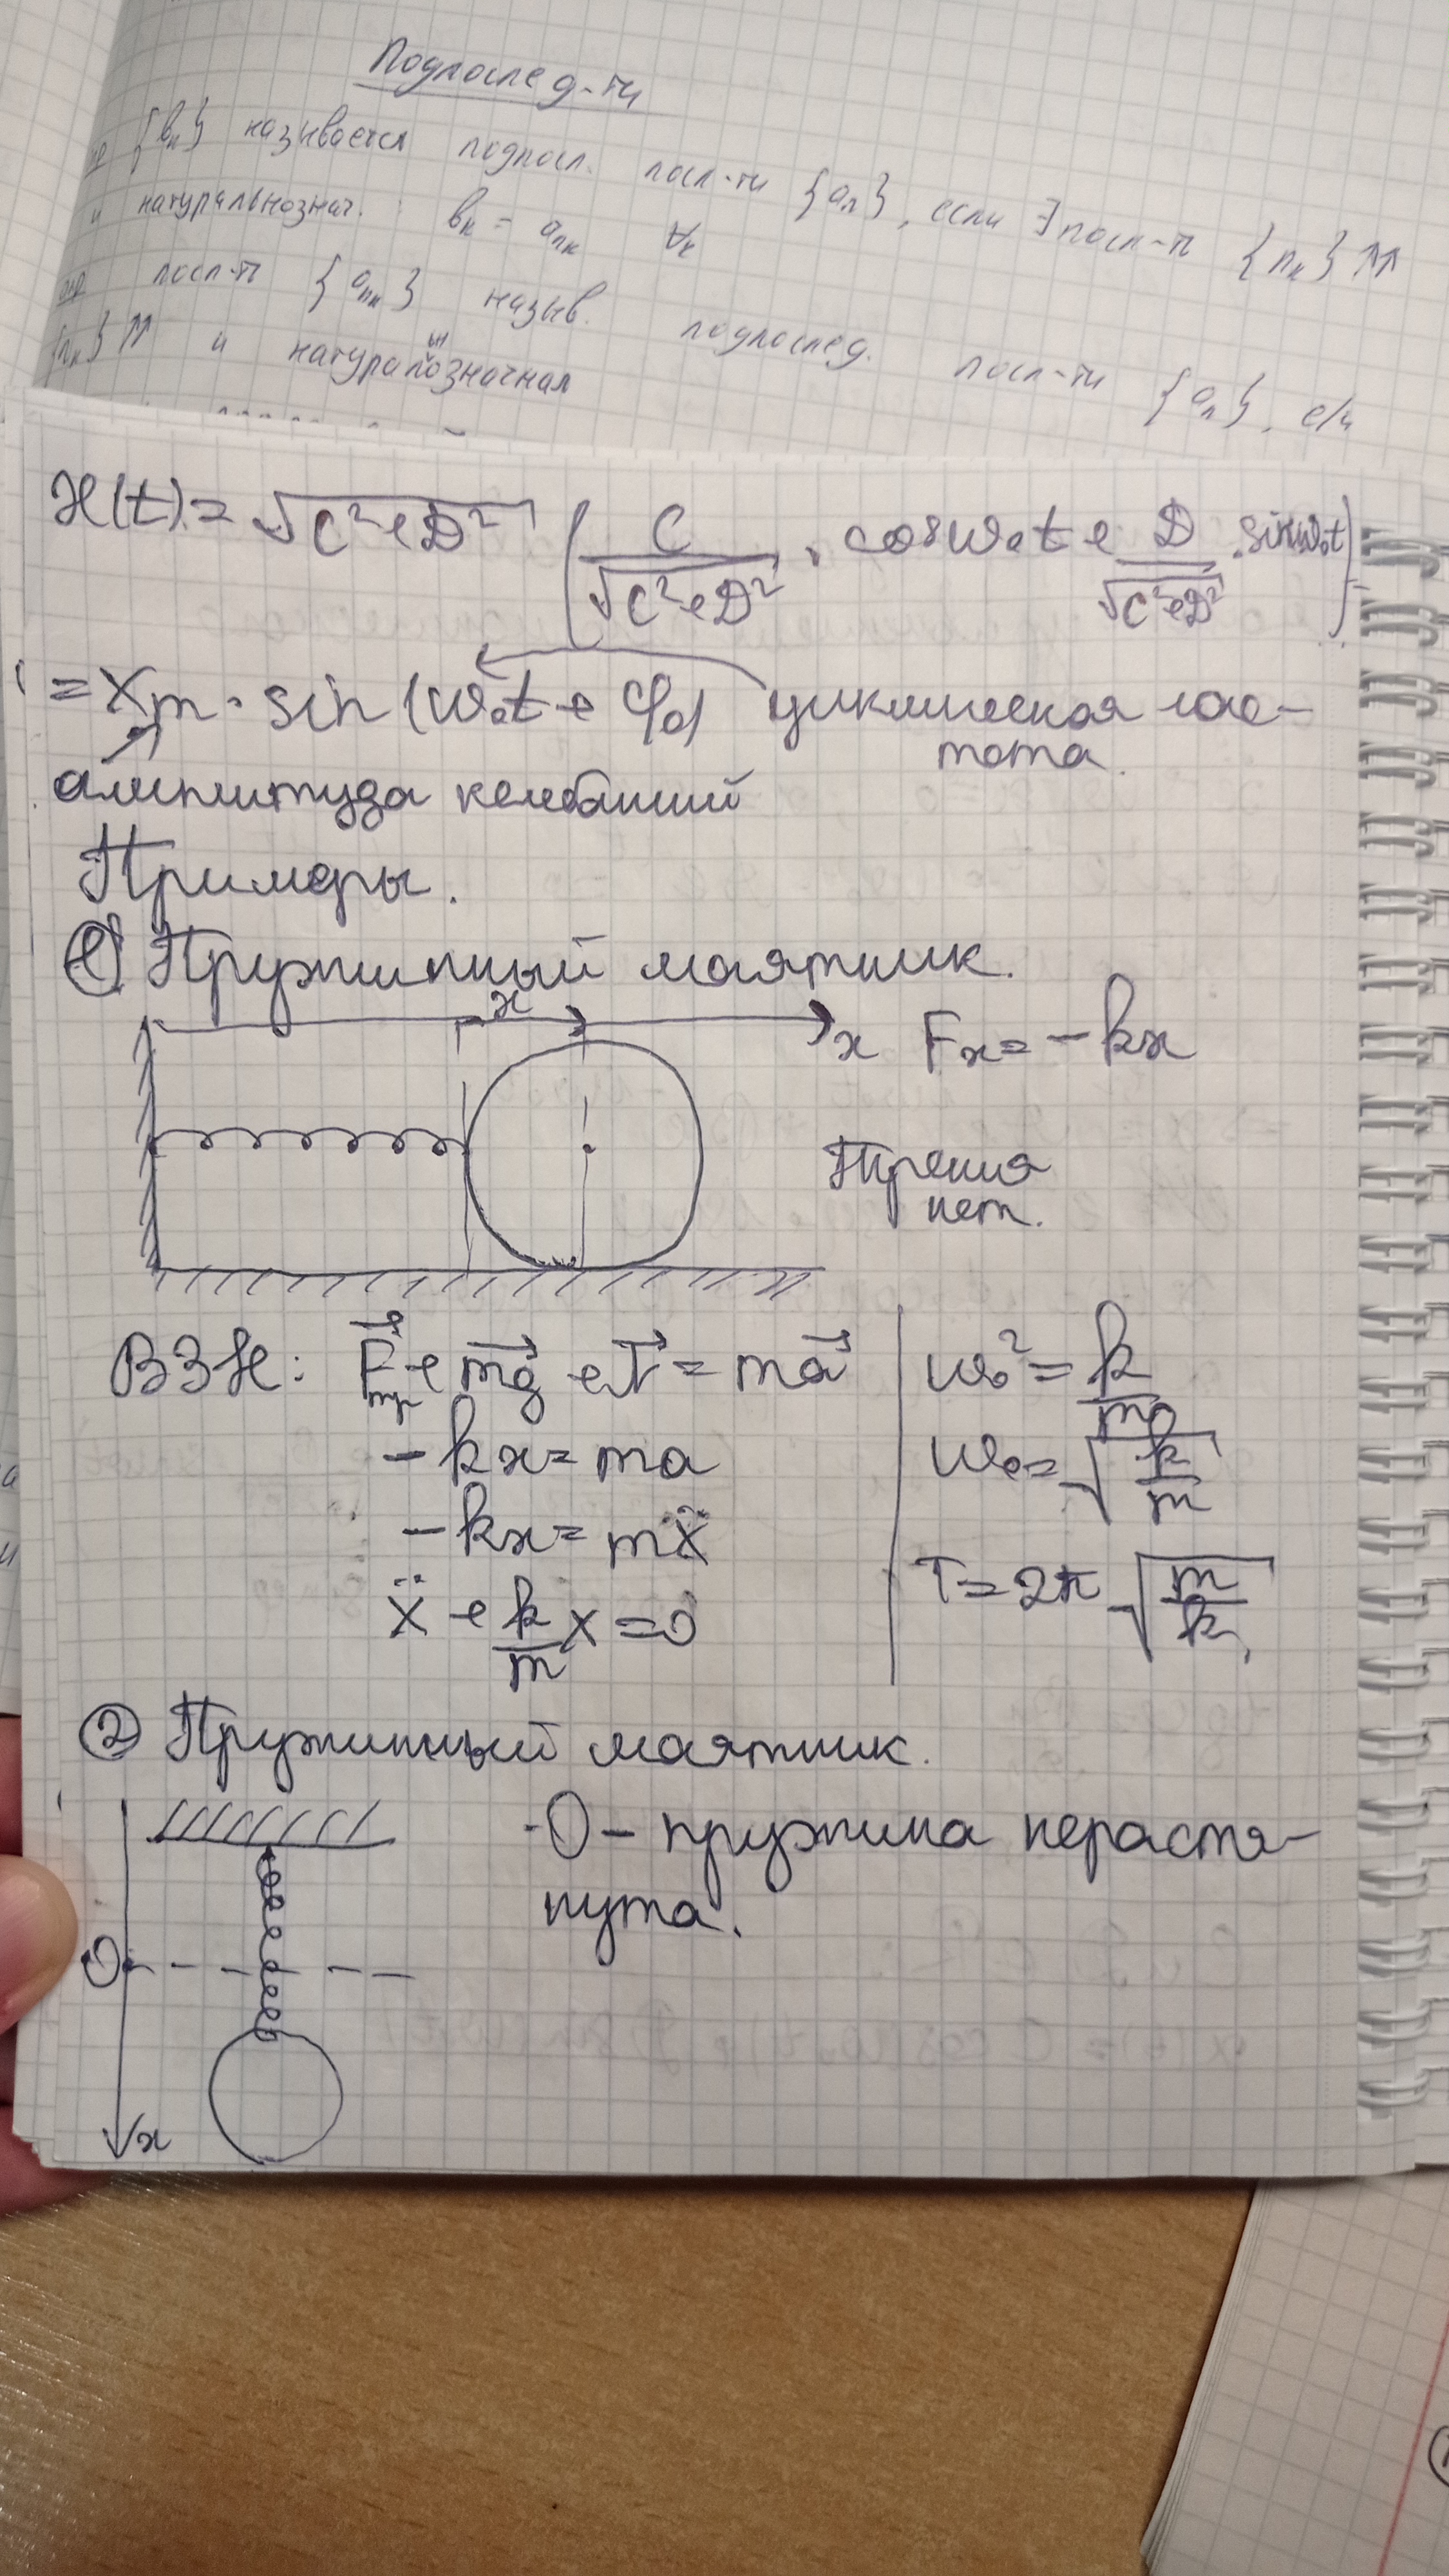 Подпослед-ти
{bₖ} называется подпосл. посл-ти {aₙ}, если ∃ посл-ть {nₖ}⇈
и натуральнознач. : bₖ = aₙₖ ∀ₖ
посл-ть {aₙₖ} назыв. подпослед. посл-ти {aₙ}, если
{nₖ}⇈ и натуральнозначная
x(t) = √(C²+D²) (C/√(C²+D²) · cosω₀t + D/√(C²+D²) · sinω₀t) =
= Xm · sin(ω₀t + φ₀) циклическая час-
тота.
амплитуда колебаний
Примеры.
① Пружинный маятник.
x
x Fx = -kx
Трения
нет.
ВЗН: F⃗упр + mg⃗ + N⃗ = ma⃗
-kx = ma
-kx = mẍ
ẍ + k/m x = 0
ω₀² = k/m
ω₀ = √(k/m)
T = 2π √(m/k)
② Пружинный маятник.
O - пружина нерастя-
нута.
O
x